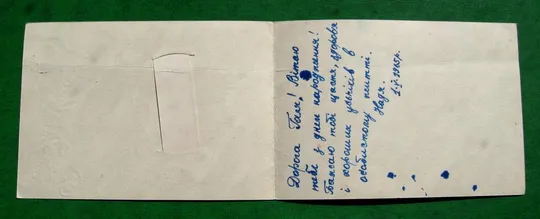 Дорога Галя! Вітаю
тебе з днем народження!
Бажаю тобі щастя, здоровя
і хороших успіхів в
особистому житті.
Надя.